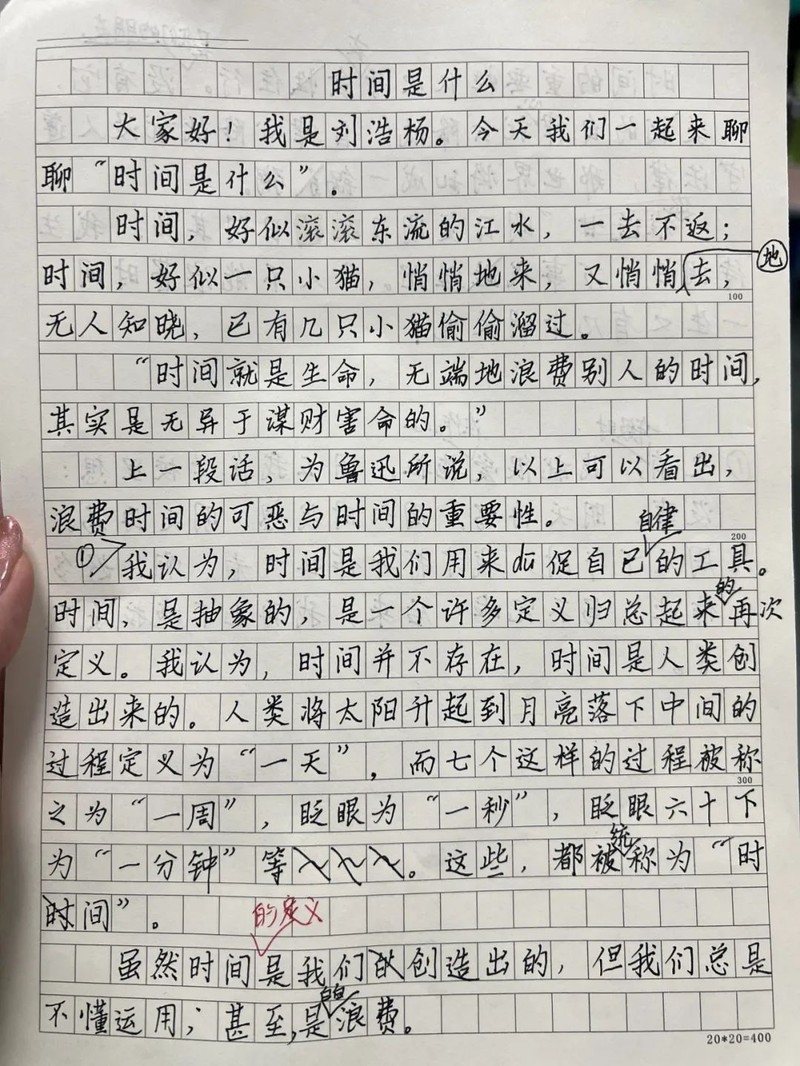 时间是什么
大家好！我是刘浩杨。今天我们一起来聊
聊“时间是什么”。
时间，好似滚滚东流的江水，一去不返；
地
时间，好似一只小猫，悄悄地来，又悄悄去，
100
无人知晓，已有几只小猫偷偷溜过。
“时间就是生命，无端地浪费别人的时间，
其实是无异于谋财害命的。”
上一段话，为鲁迅所说，以上可以看出，
浪费时间的可恶与时间的重要性。
自律
200
①我认为，时间是我们用来du促自己的工具。
的
时间，是抽象的，是一个许多定义归总起来再次
定义。我认为，时间并不存在，时间是人类创
造出来的。人类将太阳升起到月亮落下中间的
过程定义为“一天”，而七个这样的过程被称
300
之为“一周”，眨眼为“一秒”，眨眼六十下
统
为“一分钟”等。这些，都被称为“时
间”。
的定义
虽然时间是我们创造出的，但我们总是
不懂运用；甚至，是浪费。
20*20=400